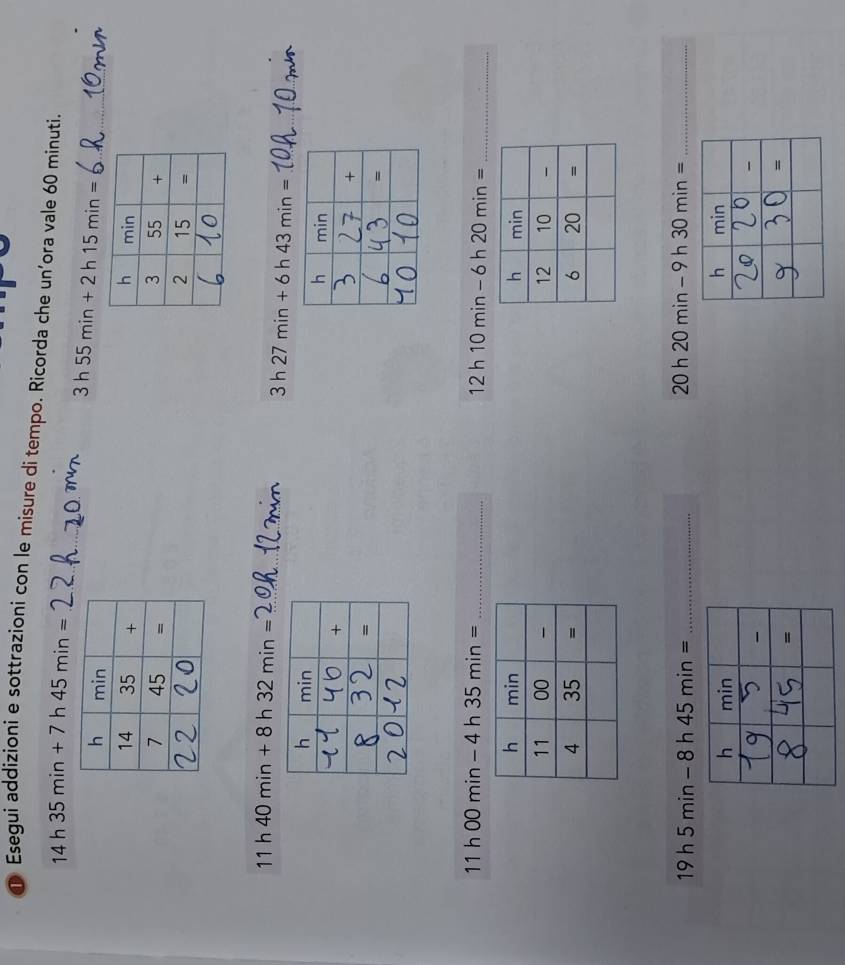 1 Esegui addizioni e sottrazioni con le misure di tempo. Ricorda che un'ora vale 60 minuti.
14 h 35 min + 7 h 45 min = 22 h 20 min
h min
14 35 +
7 45 =
22 20
3 h 55 min + 2 h 15 min = 6 h 10 min
h min
3 55 +
2 15 =
6 10
11 h 40 min + 8 h 32 min = 20 h 12 min
h min
11 40 +
8 32 =
20 12
3 h 27 min + 6 h 43 min = 10 h 10 min
h min
3 27 +
6 43 =
10 10
11 h 00 min – 4 h 35 min =
h min
11 00 –
4 35 =
12 h 10 min – 6 h 20 min =
h min
12 10 –
6 20 =
19 h 5 min – 8 h 45 min =
h min
19 5 –
8 45 =
20 h 20 min – 9 h 30 min =
h min
20 20 –
9 30 =